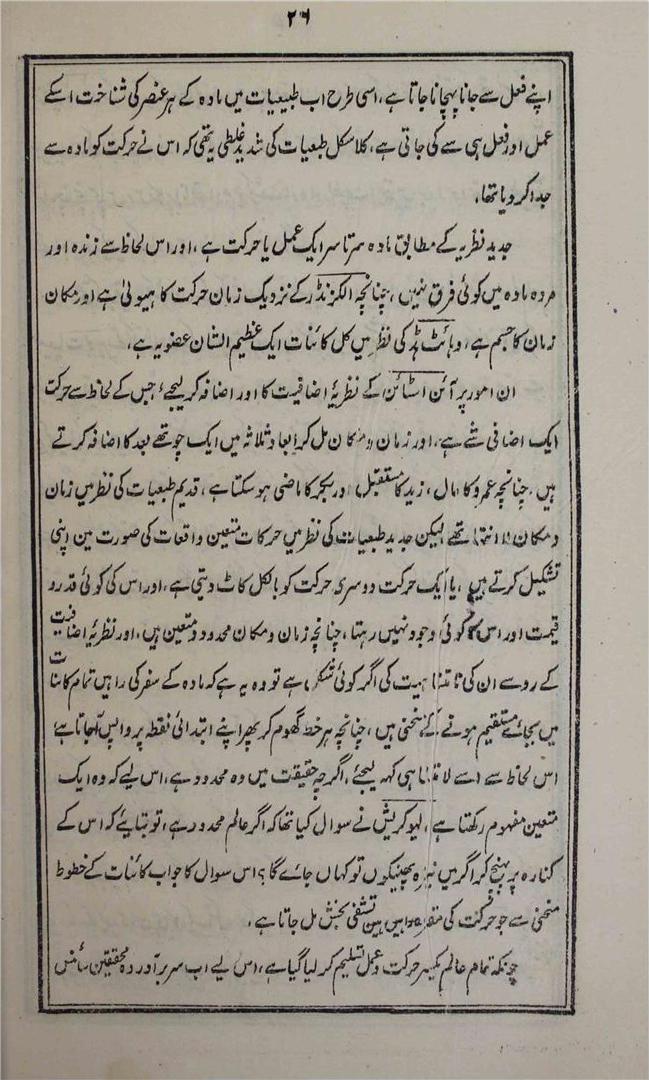 ۲۶
اپنے فعل سے جانا پہچانا جاتا ہے، اسی طرح اب طبیعیات میں مادہ کے ہر عنصر کی شناخت اسکے
عمل اور فعل ہی سے کی جاتی ہے، کلاسکل طبعیات کی شدید غلطی یہ تھی کہ اس نے حرکت کو مادہ سے
جدا کر دیا تھا،
جدید نظریہ کے مطابق مادہ سرتاسر ایک عمل یا حرکت ہے، اور اس لحاظ سے زندہ اور
مردہ مادہ میں کوئی فرق نہیں، چنانچہ الکزنڈر کے نزدیک زمان حرکت کا ہیولیٰ ہے اور مکان
زمان کا جسم ہے، وہائٹ ہڈ کی نظر میں کل کائنات ایک عظیم الشان عضویہ ہے،
ان امور پر آئن اسٹائن کے نظریۂ اضافیت کا اور اضافہ کر لیجئے، جس کے لحاظ سے حرکت
ایک اضافی شے ہے، اور زمان و مکان مل کر ابعاد ثلاثہ میں ایک چوتھے بعد کا اضافہ کرتے
ہیں، چنانچہ عمرو کا حال، زید کا مستقبل، اور بکر کا ماضی ہو سکتا ہے، قدیم طبعیات کی نظر میں زمان
و مکان لا انتہا تھے لیکن جدید طبعیات کی نظر میں حرکات متعین واقعات کی صورت مین اپنی
تشکیل کرتے ہیں، یا ایک حرکت دوسری حرکت کو بالکل کاٹ دیتی ہے، اور اس کی کوئی قدر و
قیمت اور اس کا کوئی وجود نہیں رہتا، چنانچہ زمان و مکان محدود و متعین ہیں، اور نظریۂ اضافیت
کے رو سے ان کی لا تناہیت کی اگر کوئی شکل ہے تو وہ یہ ہے کہ مادہ کے سفر کی راہیں تمام کائنات
میں بجائے مستقیم ہونے کے منحنی ہیں، چنانچہ ہر خط گھوم کر پھر اپنے ابتدائی نقطہ پر واپس آجاتا ہے،
اس لحاظ سے اسے لا تناہی کہہ لیجئے، اگرچہ حقیقت میں وہ محدود ہے، اس لیے کہ وہ ایک
متعین مفہوم رکھتا ہے، لیوکریش نے سوال کیا تھا کہ اگر عالم محدود ہے، تو بتایئے کہ اس کے
کنارہ پر پہنچ کر اگر میں نیزہ پھینکوں تو کہاں جائے گا؟ اس سوال کا جواب کائنات کے خطوط
منحنی سے جو حرکت کی راہیں ہین تشفی بخش مل جاتا ہے،
چونکہ تمام عالم یکسر حرکت و عمل تسلیم کر لیا گیا ہے، اس لیے اب سربرآوردہ محققین سائنس